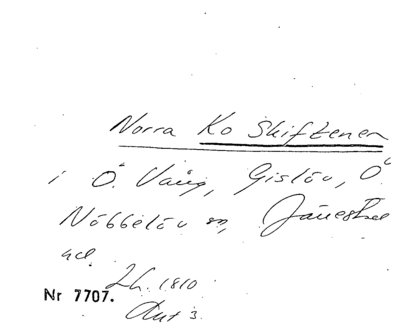 Norra Ko Skiftenen
i Ö. Vång, Gislöv, Ö
Nöbbelöv sn, Järrestad
Lh. 1810
Nr 7707.
Akt 3.